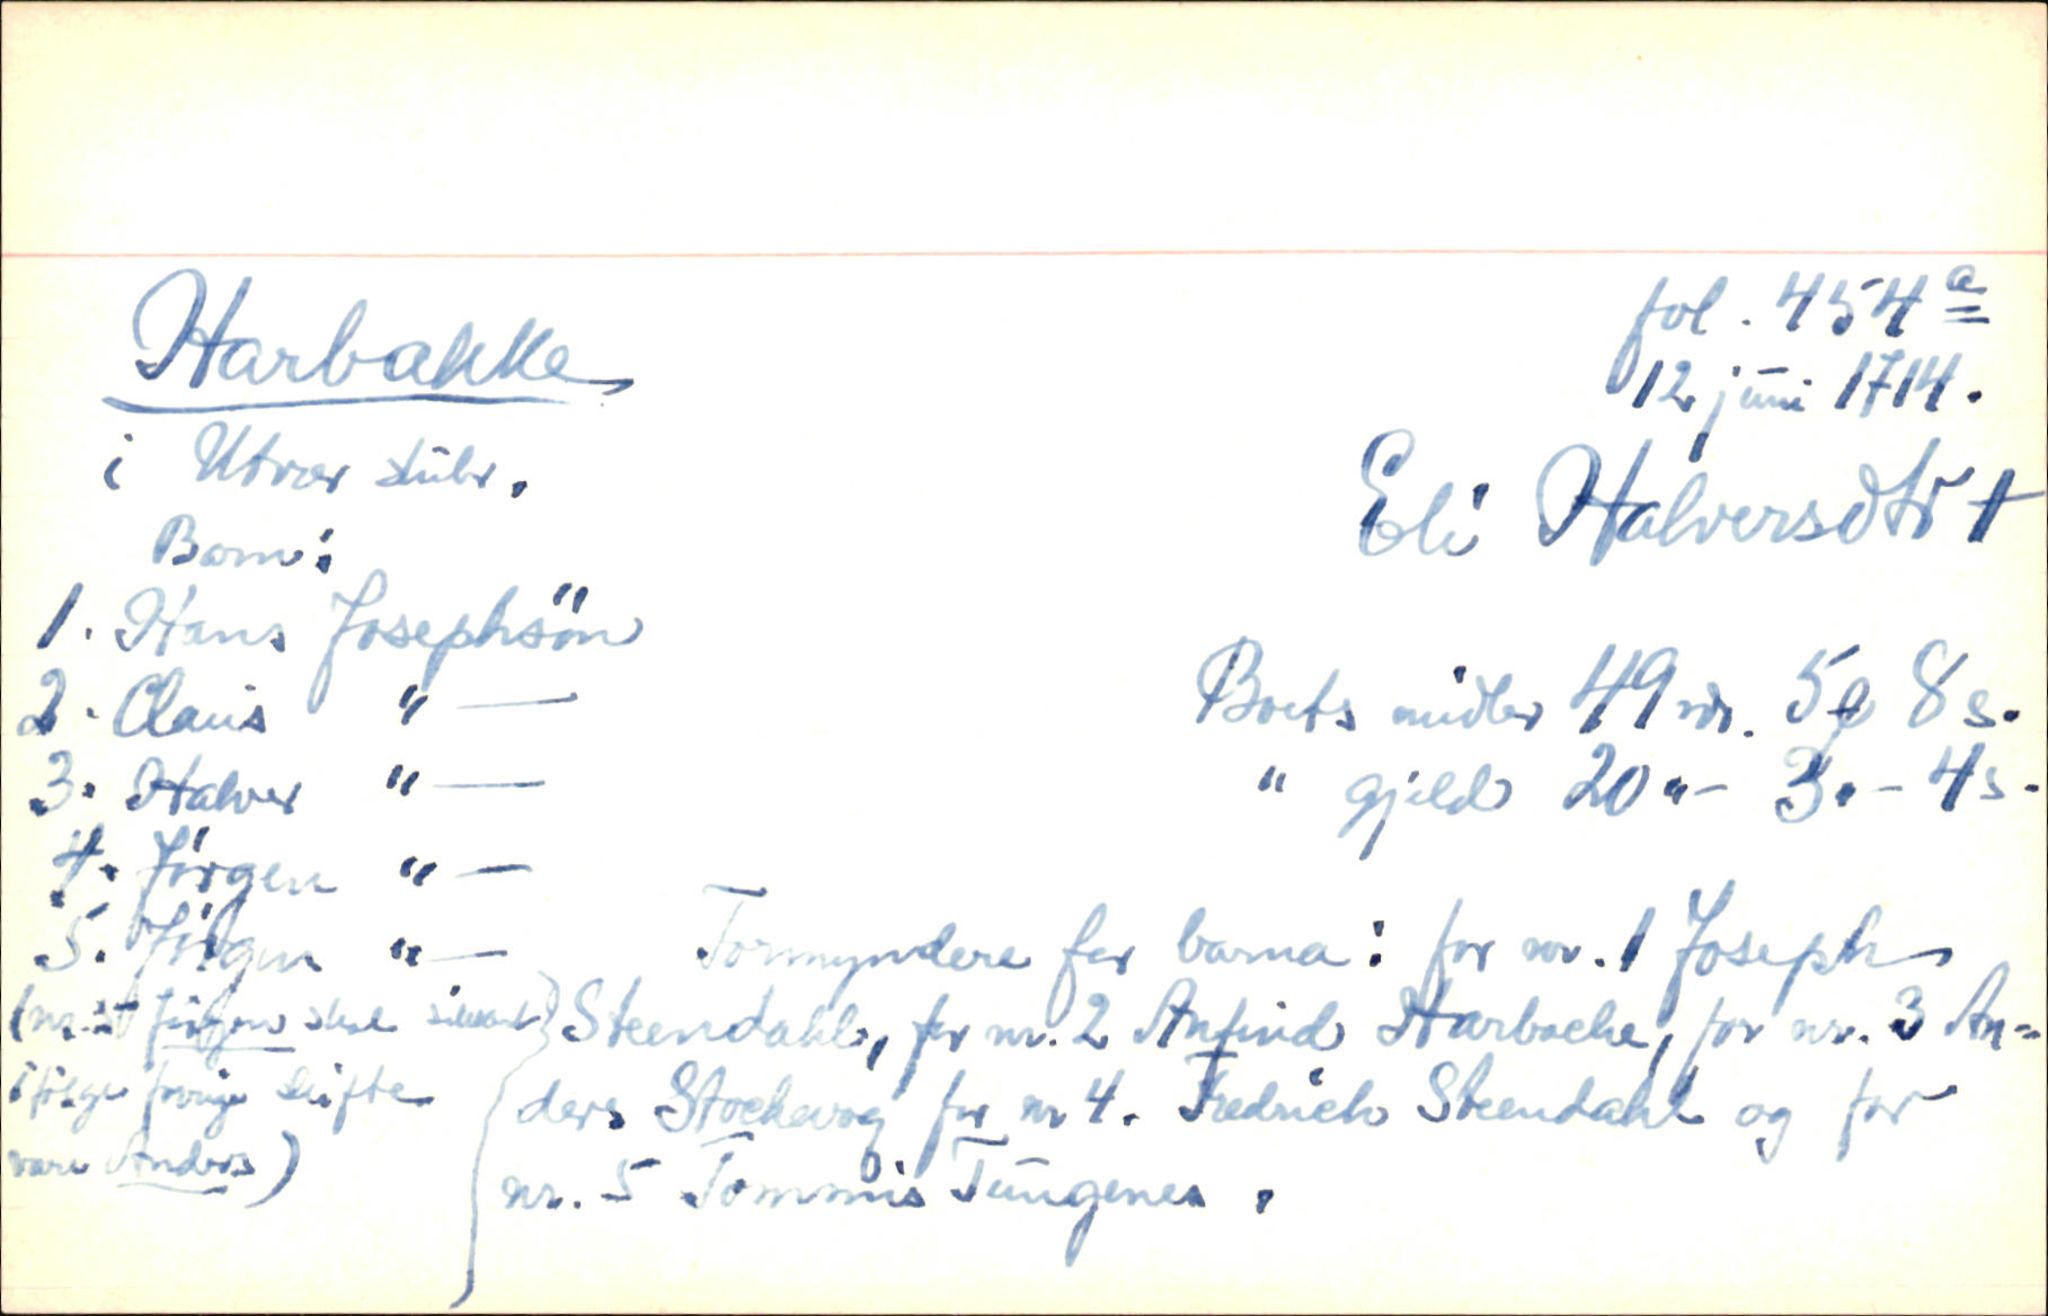 Harbakke
fol. 454a
12 juni 1714.
i Utvær skibr.
Eli Halversdtr †
Barn:
1. Hans Josephsön
2. Claus " —
3. Halver " —
4. Jörgen " —
5. Jörgen " —
(nr. 5 Jörgen skal sikkert
ifölge forrige skifte
være Anders)
Boets midler 49 rdr. 5 8 s.
" gjeld 20 "- 3 "- 4 s.
Formyndere for barna: for nr. 1 Joseph
Steendahl, for nr. 2 Anfind Harbacke, for nr. 3 An-
ders Stockevog for nr 4. Fredrich Steendahl og for
nr. 5 Tommis Tungenes.